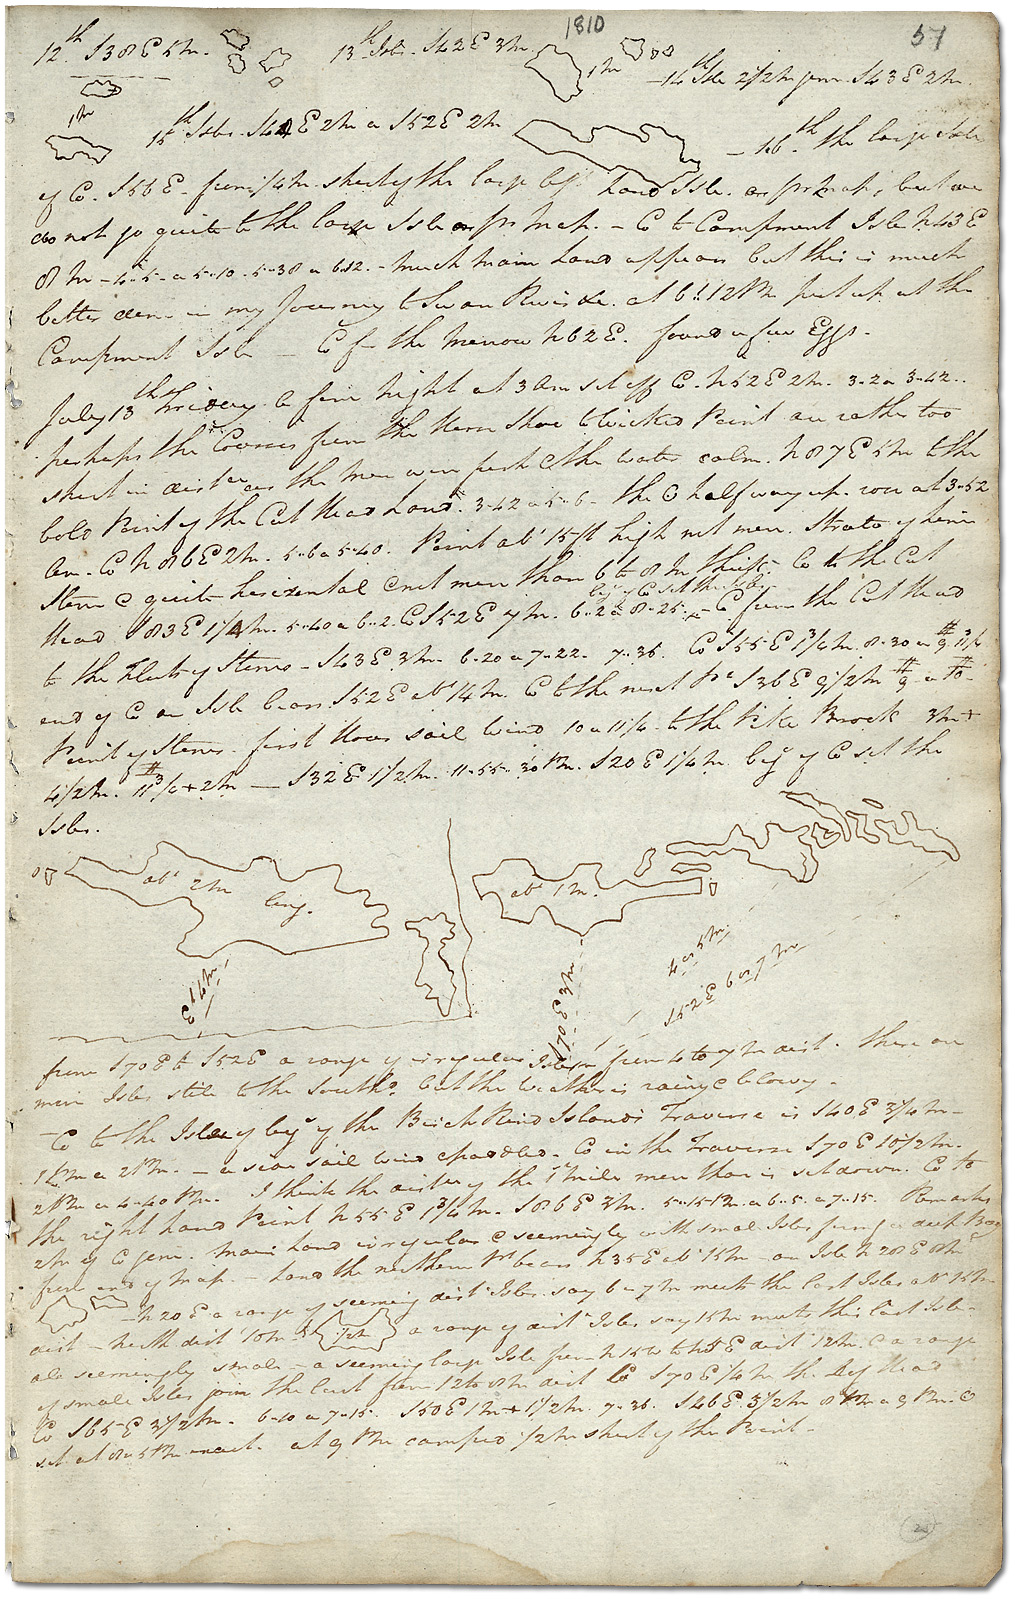 1810
57
12th S38E 5m. 13th Isle. S42E 3m. 1m 14th Isle 2 1/2m from S43E 2m
1m
15th Isles S44E 2m a S52E 2m 16th the large Isle
of Co. S56E from 1/4m short of the large left hand Isle as pr Map, but we
do not go quite to the large Isle as pr Map. Co to Campment Isle N43E
8m 5-10 5-38 a 6-12. much main Land appears but this is much
better in my Journey to Swan River at 6:12 Pm put up at the
Campment Isle Co for the morrow N62E. found a few Eggs.
July 13th Friday A fine night at 3 Am set off Co. N52E 2m. 3-2 a 3-42..
perhaps the Courses from the Shore to Wicked Point are rather too
short in distce as the men were fresh & the water calm. N87E 5m to the
bold Point of the Cat Head Land. 3-42 a 5-6 the ☉ half way up. rose at 3-52
Am. Co N86E 2m. 5-6 a 5-40. Point abt 15ft high not more. Strata of Lime
Stone & quite horizontal & not more than 6 to 8 In thick. Co to the Cat
beg of Co set the Isles
Head S83E 1 1/4m. 5-40 a 6-2. Co S52E 7m. 6-2 a 8-25. Co from the Cat Head
to the of Stones S43E 3m. 6-20 a 7-22. 7-36. Co S55E 1 3/4m. 8-30 a 9
end of Co an Isle bears S52E abt 14m. Co to the next Pt S36E 9 1/2m 9 a 10
Point of Stones. first Hour sail wind 10 a 11 1/4 to the Pike Brook 3m+
4 1/2m. 11 3/4 + 2m S32E 1 1/2m. 11-55 30 Pm. S20E 1 1/4m. beg of Co set the
Isles.
abt 2m long.
abt 1m.
E 14m
S70E 3m
4 or 5m
S52E 6 or 7m
from S70E to S52E a range of irregular Isles from 4 to 7m dist. There are
more Isles still to the Southd. but the Weather is rainy & blowy.
Co to the Isle of beg of the Birch Rind Islands Traverse is S40E 3 3/4m
1 Pm a 2 Pm. a sail wind & paddled. Co in the Traverse S70E 10 1/2m.
2 Pm a 4-40 Pm. I think the distce of the 1st mile more than is set down. Co to
the right hand Point N55E 1 3/4m. S86E 3m. 5-15 Pm a 6-5 a 7-15. Remarks
2m of Co gone. Main Land irregular & seemingly with small Isles forming a deep Bay
from end of Map. Land the northern Pt bears N35E abt 15m an Isle N28E 8m
N20E a range of seeming dist Isles say 6 a 7m meets the last Isles abt 15m
dist north dist 10m 1/2m a range of dist Isles say 15m meets this last Isle
all seemingly small a seeming large Isle from N15W to N5E dist 12m & a range
of small Isles join the last from 12 to 8m dist Co S70E 1/4m the Dog Head
Co S65E 3 1/2m. 6-10 a 7-15. S50E 1m + 1 1/2m. 7-36. S46E 3 1/2m 8 Pm a 9 Pm. ☉
set at 8-5 Pm exact. at 9 Pm camped 1/2m short of the Point.